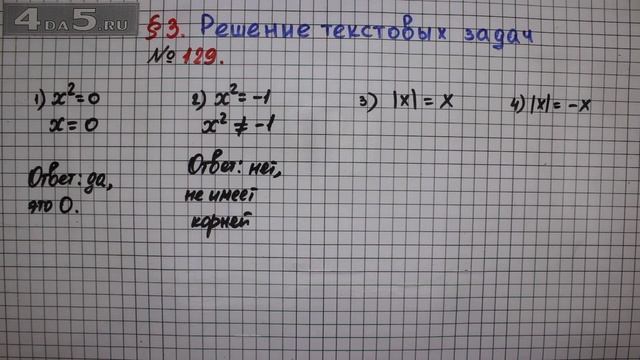 4DA5.RU
§3. Решение текстовых задач
№ 129.
1) x²=0
x=0
Ответ: да,
это 0.
2) x²=-1
x²≠-1
Ответ: нет,
не имеет
корней
3) |x|=x
4) |x|=-x